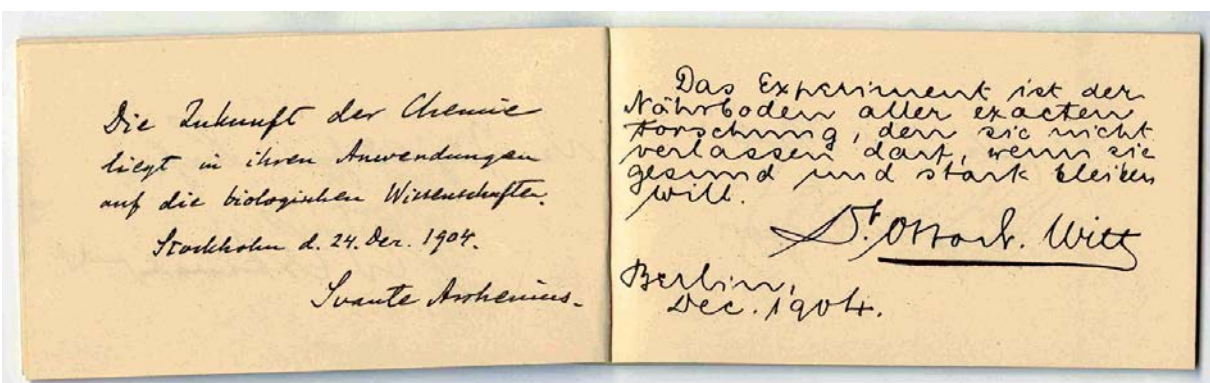 Die Zukunft der Chemie
liegt in ihren Anwendungen
auf die biologischen Wissenschaften.
Stockholm d. 24. Dez. 1904.
Svante Arrhenius.
Das Experiment ist der
Nährboden aller exacten
Forschung, den sie nicht
verlassen darf, wenn sie
gesund und stark bleiben
will.
Dr. Otto N. Witt
Berlin,
Dec. 1904.